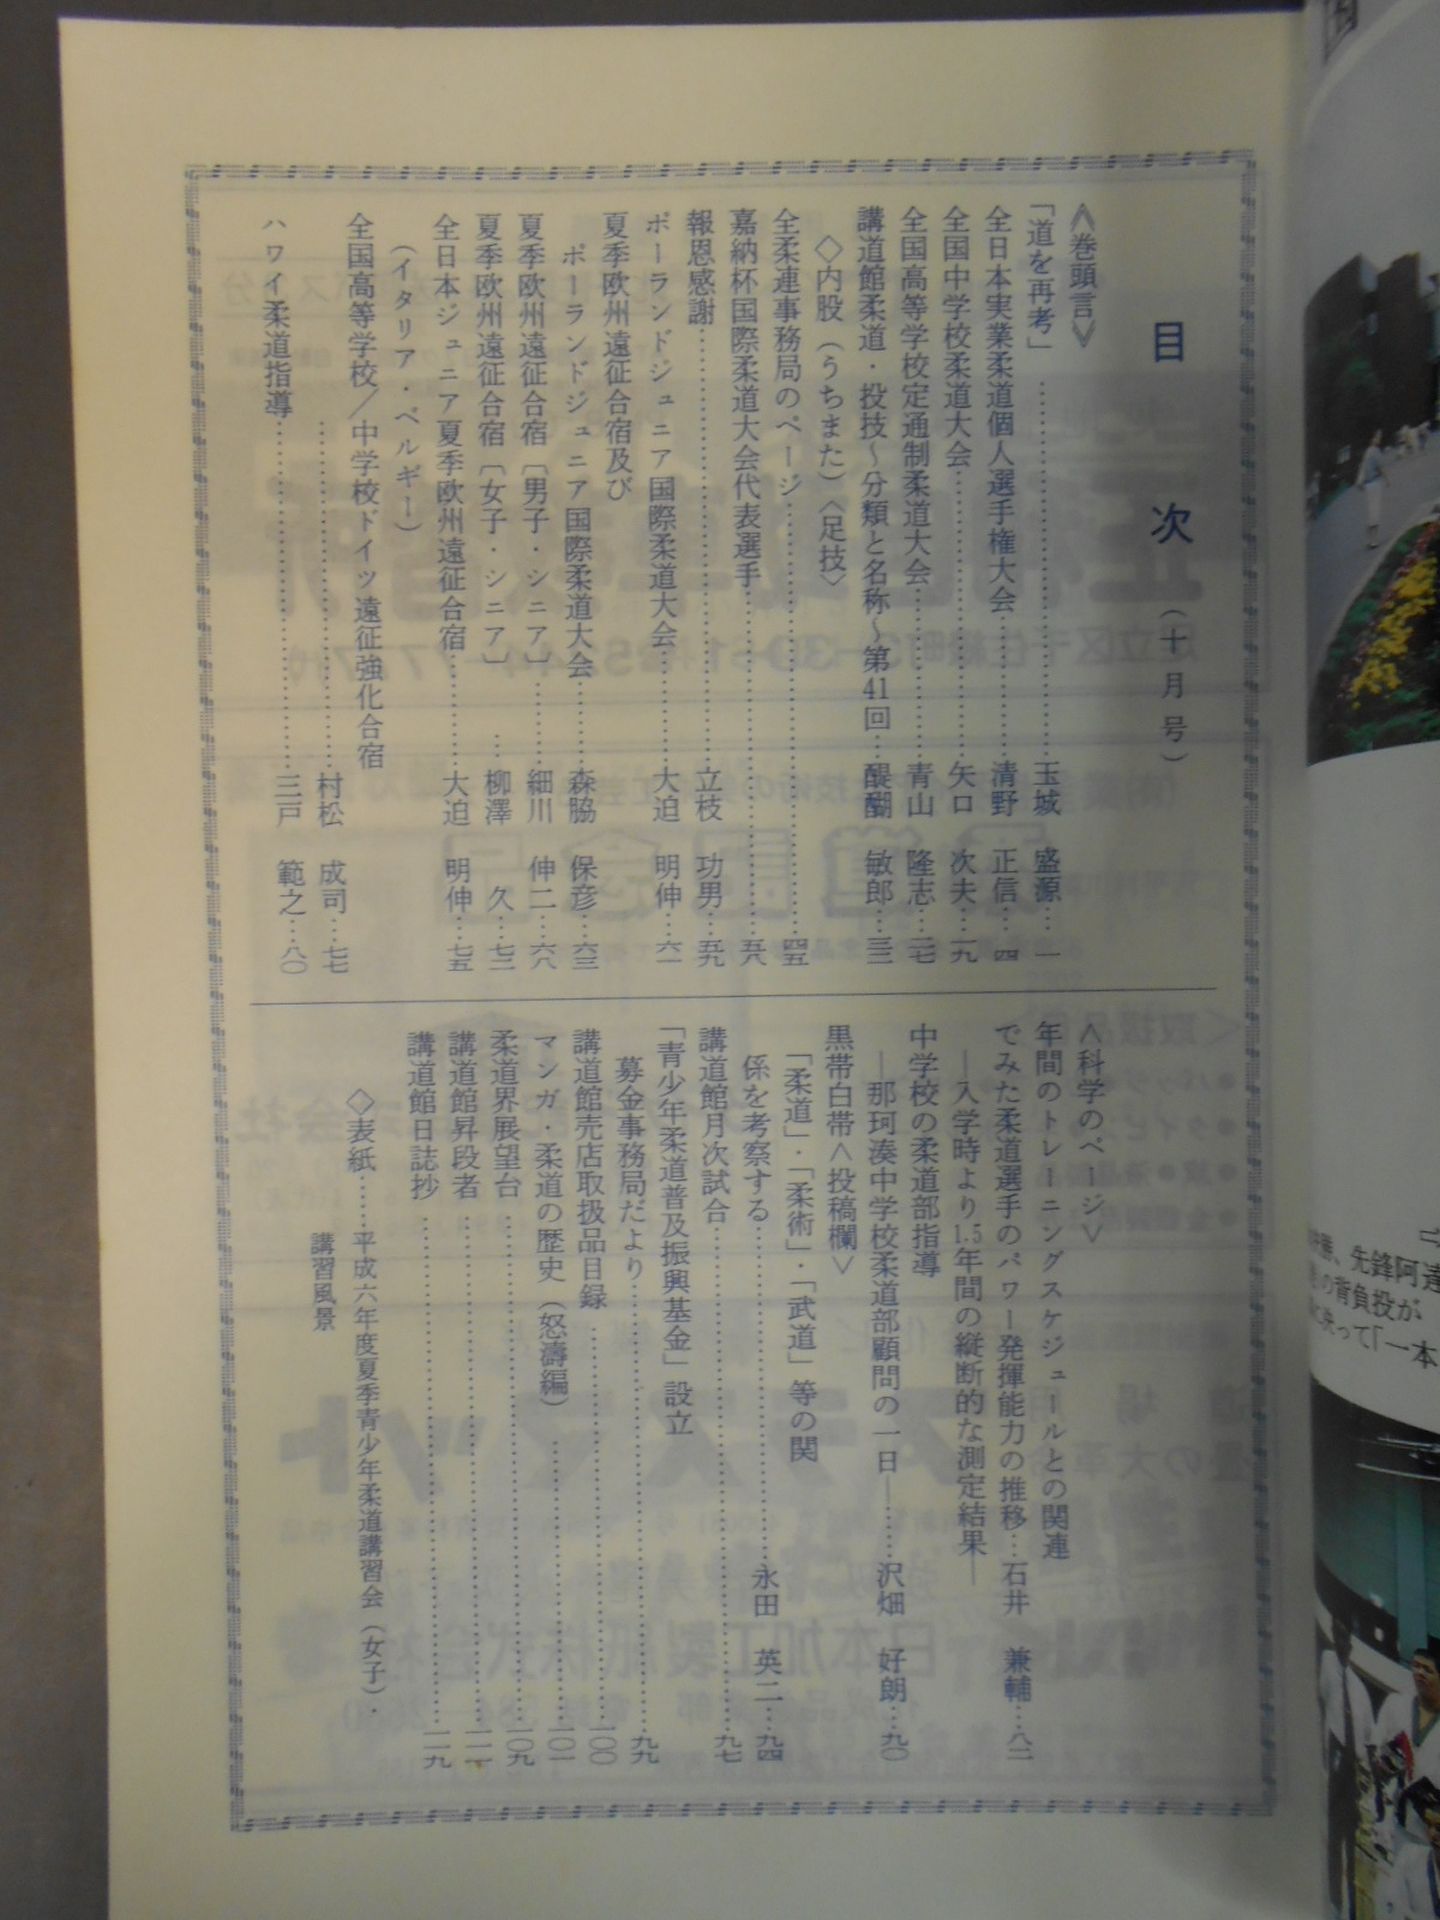 目次（十月号）
≪巻頭言≫
「道を再考」…………玉城　盛源…一
全日本実業柔道個人選手権大会…………清野　正信…四
全国中学校柔道大会…………矢口　次夫…一九
全国高等学校定通制柔道大会…………青山　隆志…二七
講道館柔道・投技～分類と名称～第41回…醍醐　敏郎…三三
◇内股（うちまた）〈足技〉
全柔連事務局のページ…………四五
嘉納杯国際柔道大会代表選手…………五八
報恩感謝…………立枝　功男…五九
ポーランドジュニア国際柔道大会…………大迫　明伸…六一
夏季欧州遠征合宿及び
ポーランドジュニア国際柔道大会…………森脇　保彦…六三
夏季欧州遠征合宿〔男子・シニア〕…………細川　伸二…六八
夏季欧州遠征合宿〔女子・シニア〕…柳澤　久…七二
全日本ジュニア夏季欧州遠征合宿…………大迫　明伸…七五
（イタリア・ベルギー）
全国高等学校／中学校ドイツ遠征強化合宿
…………村松　成司…七七
ハワイ柔道指導…………三戸　範之…八〇
＜科学のページ＞
年間のトレーニングスケジュールとの関連
でみた柔道選手のパワー発揮能力の推移…石井　兼輔…八二
―入学時より1.5年間の縦断的な測定結果―
中学校の柔道部指導
―那珂湊中学校柔道部顧問の一日―……沢畑　好朗…九〇
黒帯白帯＜投稿欄＞
「柔道」・「柔術」・「武道」等の関
係を考察する…………永田　英二…九四
講道館月次試合…………九七
「青少年柔道普及振興基金」設立
募金事務局だより…………九九
講道館売店取扱品目録…………一〇〇
マンガ・柔道の歴史（怒濤編）…………一〇一
柔道界展望台…………一〇九
講道館昇段者…………一一一
講道館日誌抄…………一一九
◇表紙……平成六年度夏季青少年柔道講習会（女子）・
講習風景
勝、先鋒阿達
の背負投が
決って「一本